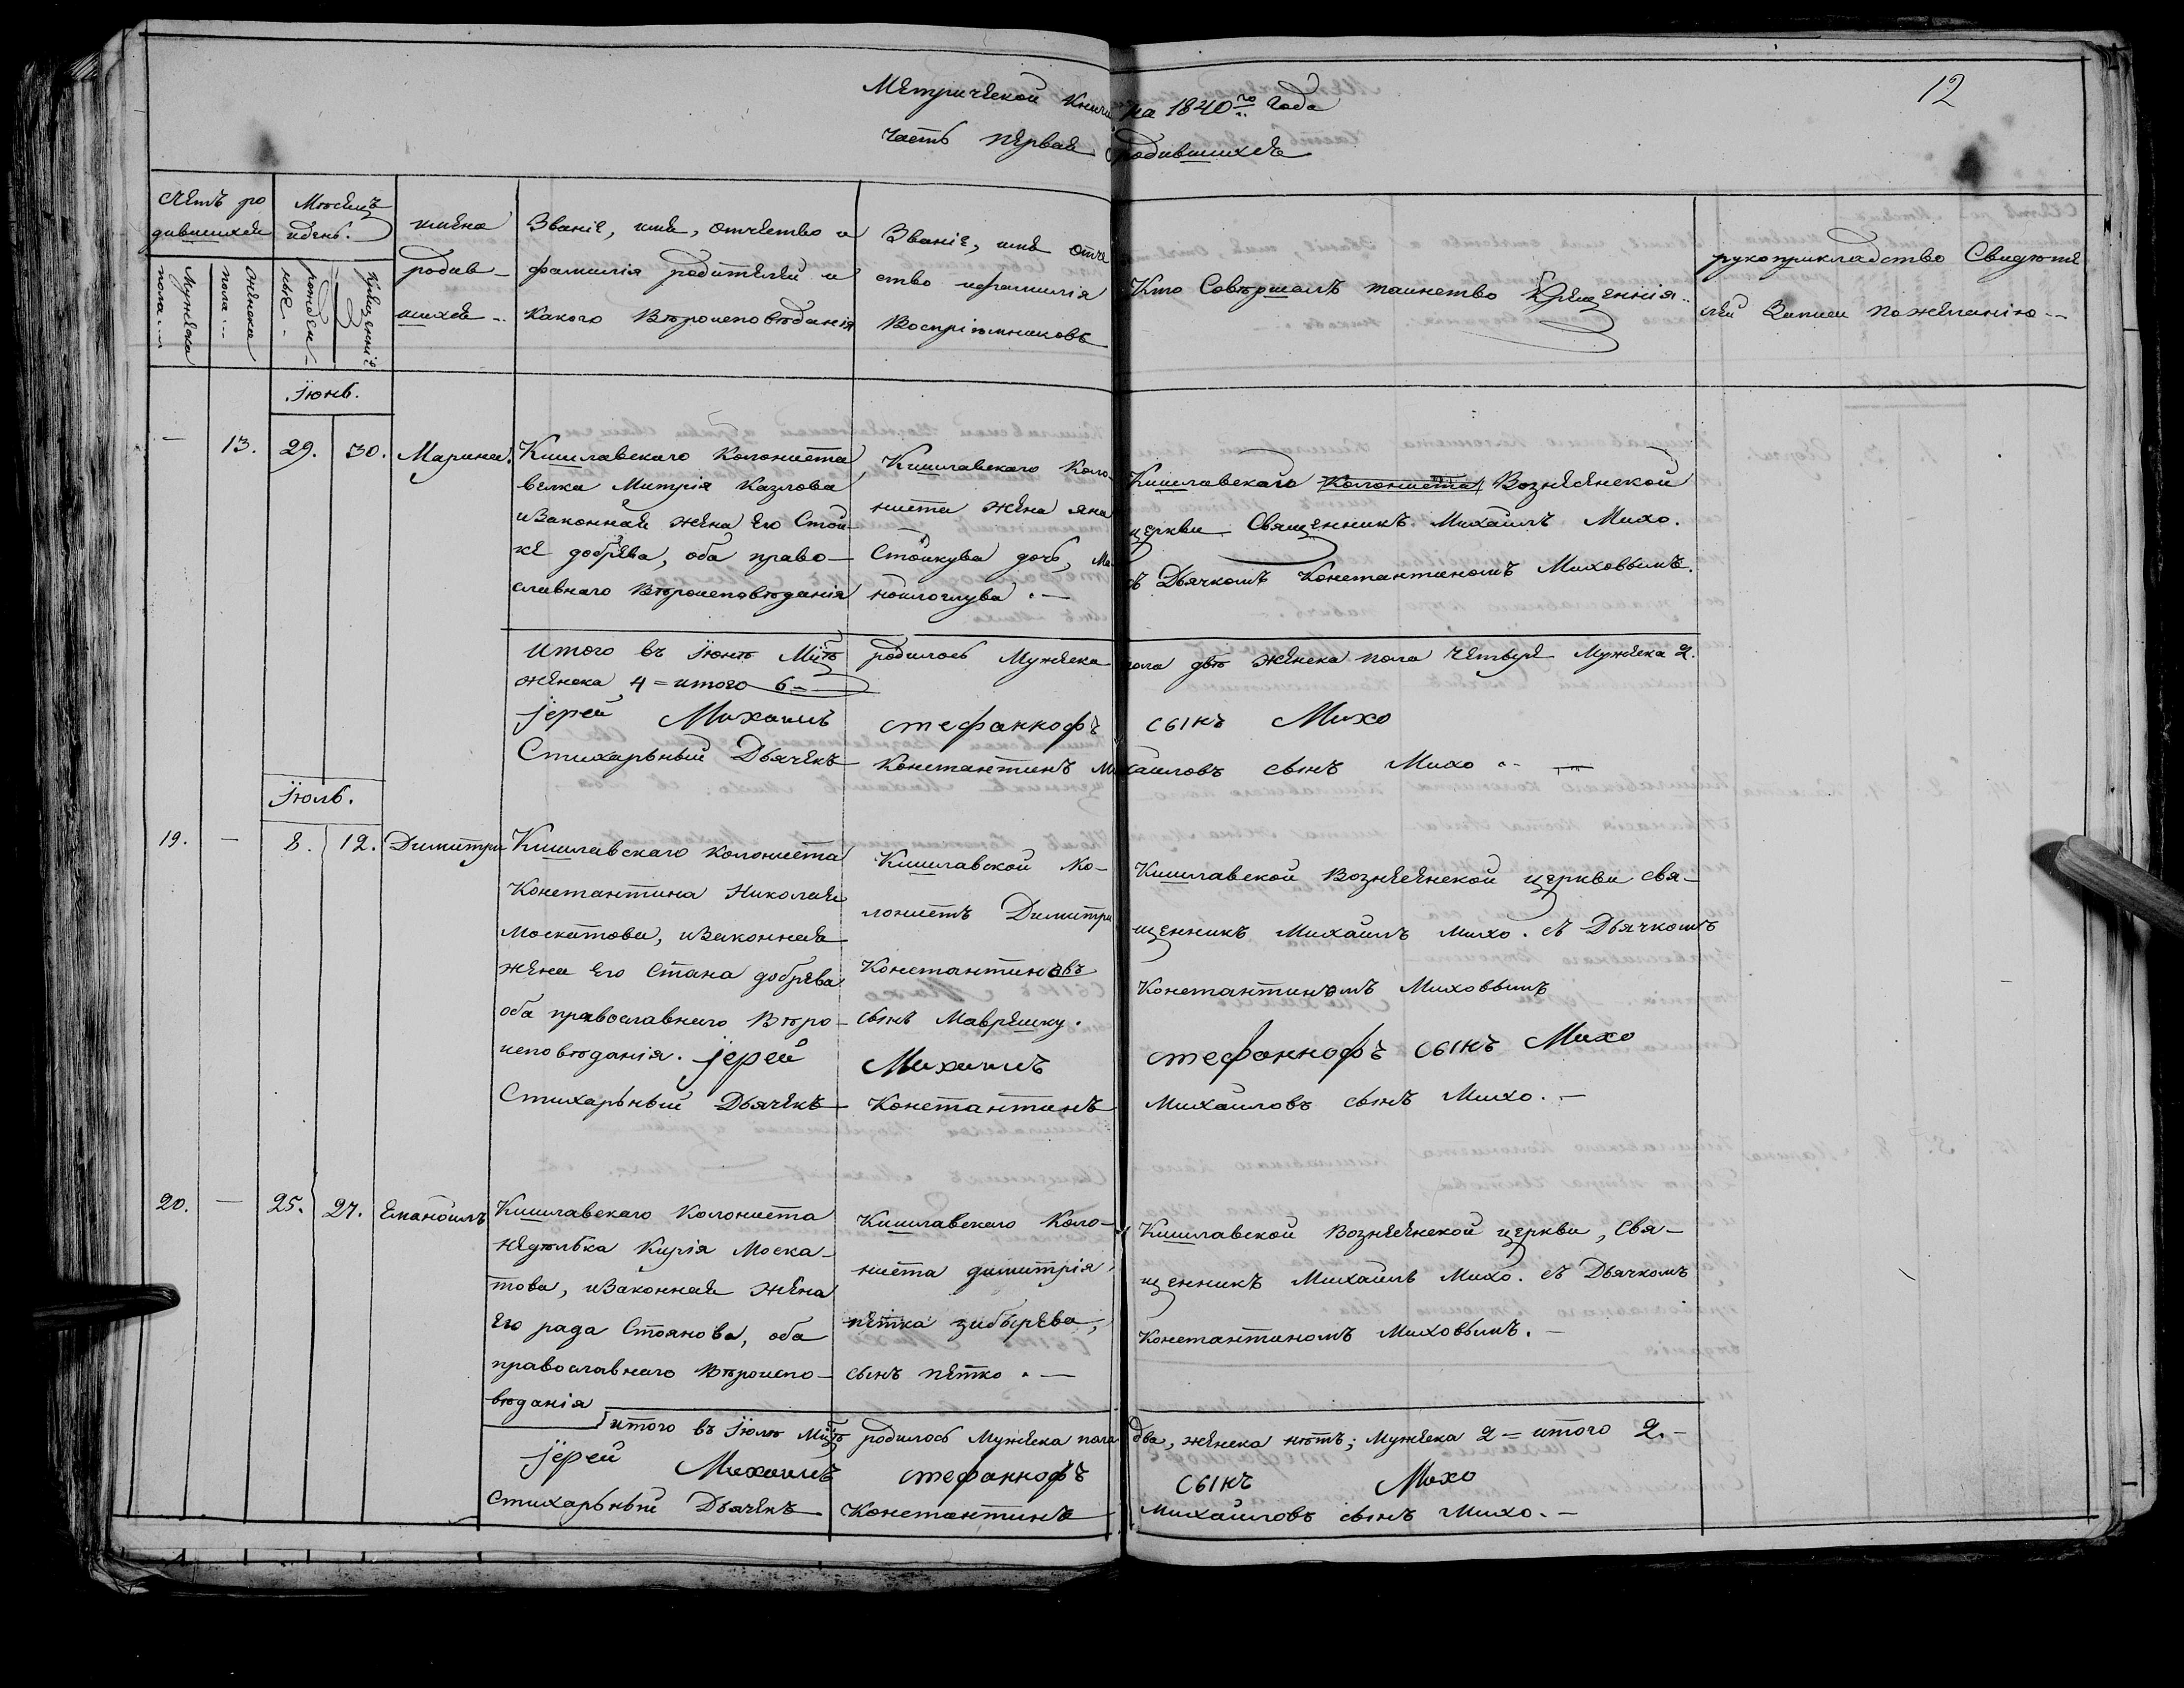 Метрической Книги на 1840го Года
12
часть первая о родившихся
счетъ ро
дившихся
Мужеска
пола
женска
пола
Месецъ
и день.
рожден
ние
крещенніе
имена
родив-
шихся
Званіе, имя, отчество и
фамилія родителей и
какого Вероисповеданія
Званіе, имя отче
ство и фамилія
Воспріемниковъ
Кто Совершалъ таинство Крещеннія
рукоприкладство Свидете
лей Записи пожеланію
Іюнь.
– 13. 29. 30. Марина.
Кишлавскаго Колониста
велка Митрія Казлова
и Законная жена его Стой-
ке добрева, оба право-
славнаго Вероисповеданія
Кишлавскаго коло-
ниста жена яна
Стойкува дочь, Ма-
Кишлавскаго Колониста Вознесенской
церкви Священникъ Михаилъ Михо.
съ Дьячкомъ Константиномъ Миховымъ.
итого въ Іюнѣ М-цѣ родилось Мужеска пола две женска пола Четыре Мужска 2.
женска 4 = итого 6
іерей Михаилъ стефанкофъ сынъ Михо
Стихарьный Дьячекъ Константинъ Михаиловъ сынъ Михо
Іюль.
19. – 8. 12. Димитри
Кишлавскаго колониста
Константина Николая
Москатова, и Законная
жена его Стана добрева
оба православнаго Веро-
исповеданія.
Кишлавской ко-
лонистъ Димитри
Константиновъ
сынъ Маврешку.
Кишлавской Вознесенской церкви свя-
щенникъ Михаилъ Михо. съ Дьячкомъ
Константиномъ Миховымъ
іерей Михаилъ стефанкофъ сынъ Михо
Стихарьный Дьячекъ Константинъ Михаиловъ сынъ Михо.
20. – 25. 27. Еманоилъ
Кишлавскаго Колониста
недѣлька Кирія Моска-
това, и Законная Жена
его рада Стоянова, оба
православнаго Вѣроиспо-
вѣданія
Кишлавскаго Коло-
ниста димитрія
петка зибырева,
сынъ петко.
Кишлавской Вознесенской церкви, Свя-
щенникъ Михаилъ Михо. съ Дьячкомъ
Константиномъ Миховымъ.
итого въ Іюлѣ М-цѣ родилось Мужеска пола два, женска нѣтъ; Мужеска 2 = итого 2.
іерей Михаилъ стефанкофъ сынъ Михо
Стихарьный Дьячекъ Константинъ Михаиловъ сынъ Михо.